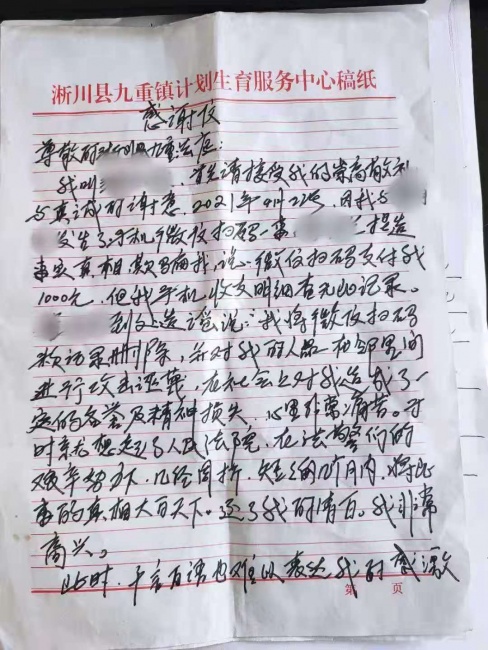 淅川县九重镇计划生育服务中心稿纸
感谢信
尊敬的九重法庭：
我叫 首先请接受我的崇高敬礼
与真诚的谢意。2021年4月 因我与
发生了手机微信扫码一事 捏造
事实真相 说微信扫码支付我
1000元，但我手机收支明细查无此记录。
到处造谣说：我将微信扫码
款记录删除，并对我的人品和邻里间
进行攻击诋毁，在社会上对我造成了一
定的名誉及精神损失，心里非常痛苦。
时 想起了人民法院，在法 们的
艰辛努力下，几经周折，短短的 月内，将此
事的真相大白天下。还了我的清白。我非常
高兴。
此时，千言万语也难以表达我的感激
第 页